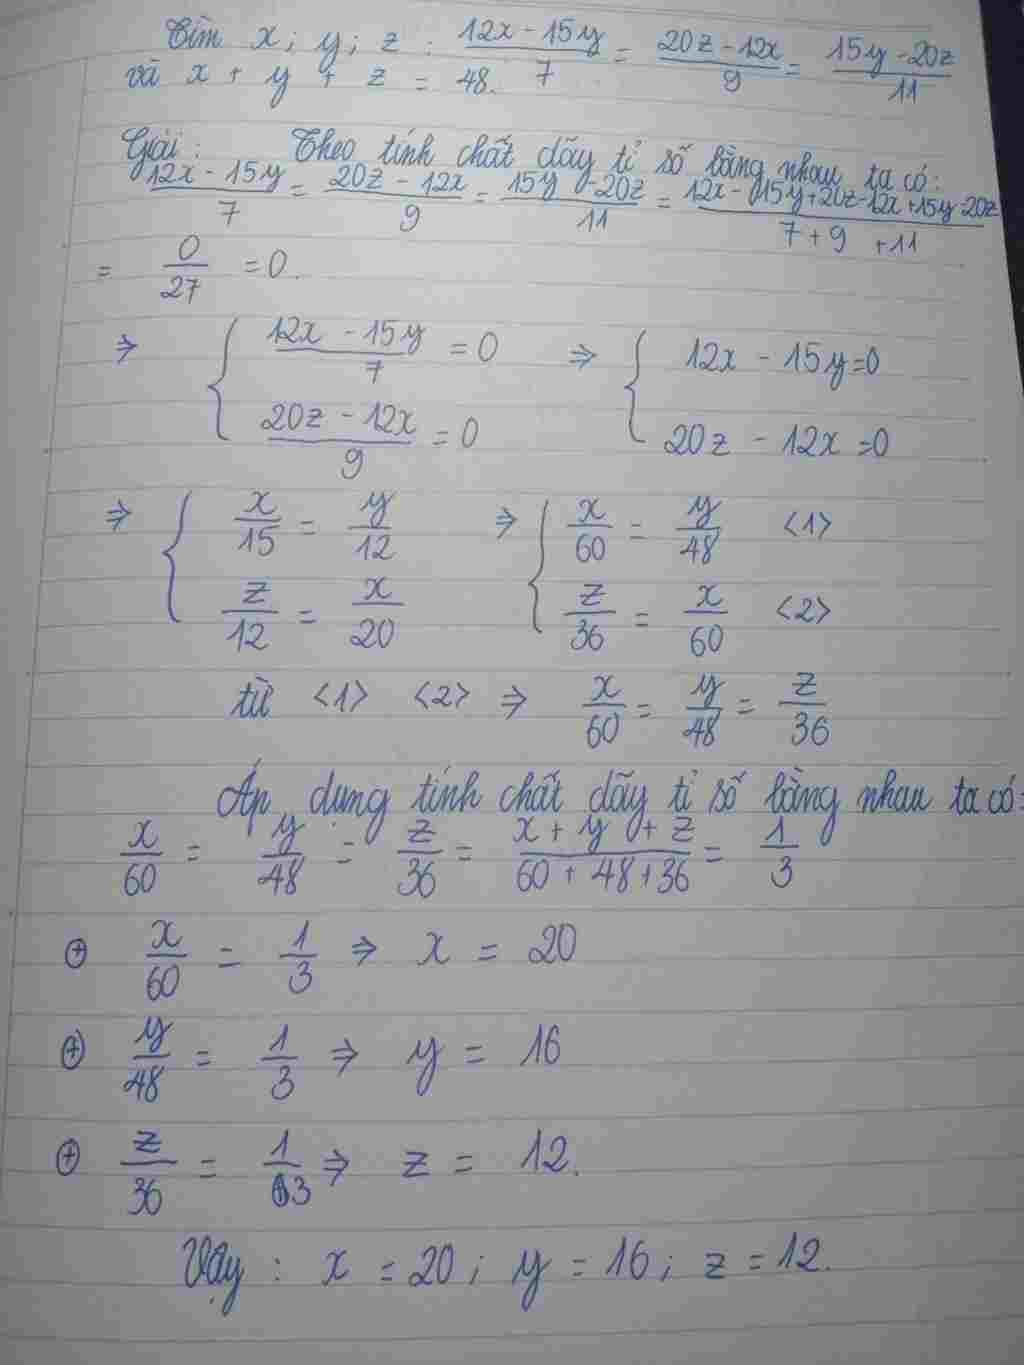 Tìm x; y; z : \frac{12x - 15y}{7} = \frac{20z - 12x}{9} = \frac{15y - 20z}{11}
và x + y + z = 48.
Giải: Theo tính chất dãy tỉ số bằng nhau ta có:
\frac{12x - 15y}{7} = \frac{20z - 12x}{9} = \frac{15y - 20z}{11} = \frac{12x - 15y + 20z - 12x + 15y - 20z}{7 + 9 + 11}
= \frac{0}{27} = 0.
⇒ { \frac{12x - 15y}{7} = 0 ⇒ { 12x - 15y = 0
\frac{20z - 12x}{9} = 0 20z - 12x = 0
⇒ { \frac{x}{15} = \frac{y}{12} ⇒ { \frac{x}{60} = \frac{y}{48} <1>
\frac{z}{12} = \frac{x}{20} \frac{z}{36} = \frac{x}{60} <2>
từ <1> <2> ⇒ \frac{x}{60} = \frac{y}{48} = \frac{z}{36}
Áp dụng tính chất dãy tỉ số bằng nhau ta có:
\frac{x}{60} = \frac{y}{48} = \frac{z}{36} = \frac{x + y + z}{60 + 48 + 36} = \frac{1}{3}
⊕ \frac{x}{60} = \frac{1}{3} ⇒ x = 20
⊕ \frac{y}{48} = \frac{1}{3} ⇒ y = 16
⊕ \frac{z}{36} = \frac{1}{3} ⇒ z = 12.
Vậy : x = 20 ; y = 16 ; z = 12.